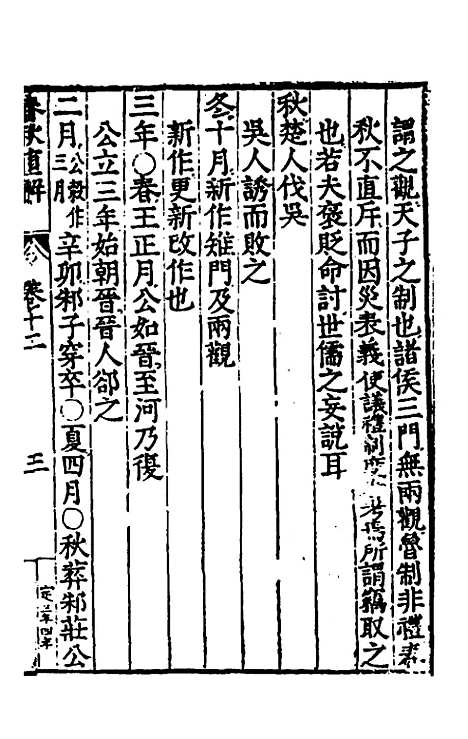 謂之觀天子之制也諸侯三門無兩觀魯制非禮春
秋不直斥而因災表義使議禮制度者考焉所謂竊取之
也若夫褒貶命討世儒之妄說耳
秋楚人伐吳
吳人誘而敗之
冬十月新作雉門及兩觀
新作更新改作也
三年〇春王正月公如晉至河乃復
公立三年始朝晉晉人郤之
二月公穀作三月辛卯邾子穿卒〇夏四月〇秋葬邾莊公
春秋直解 卷十二 三